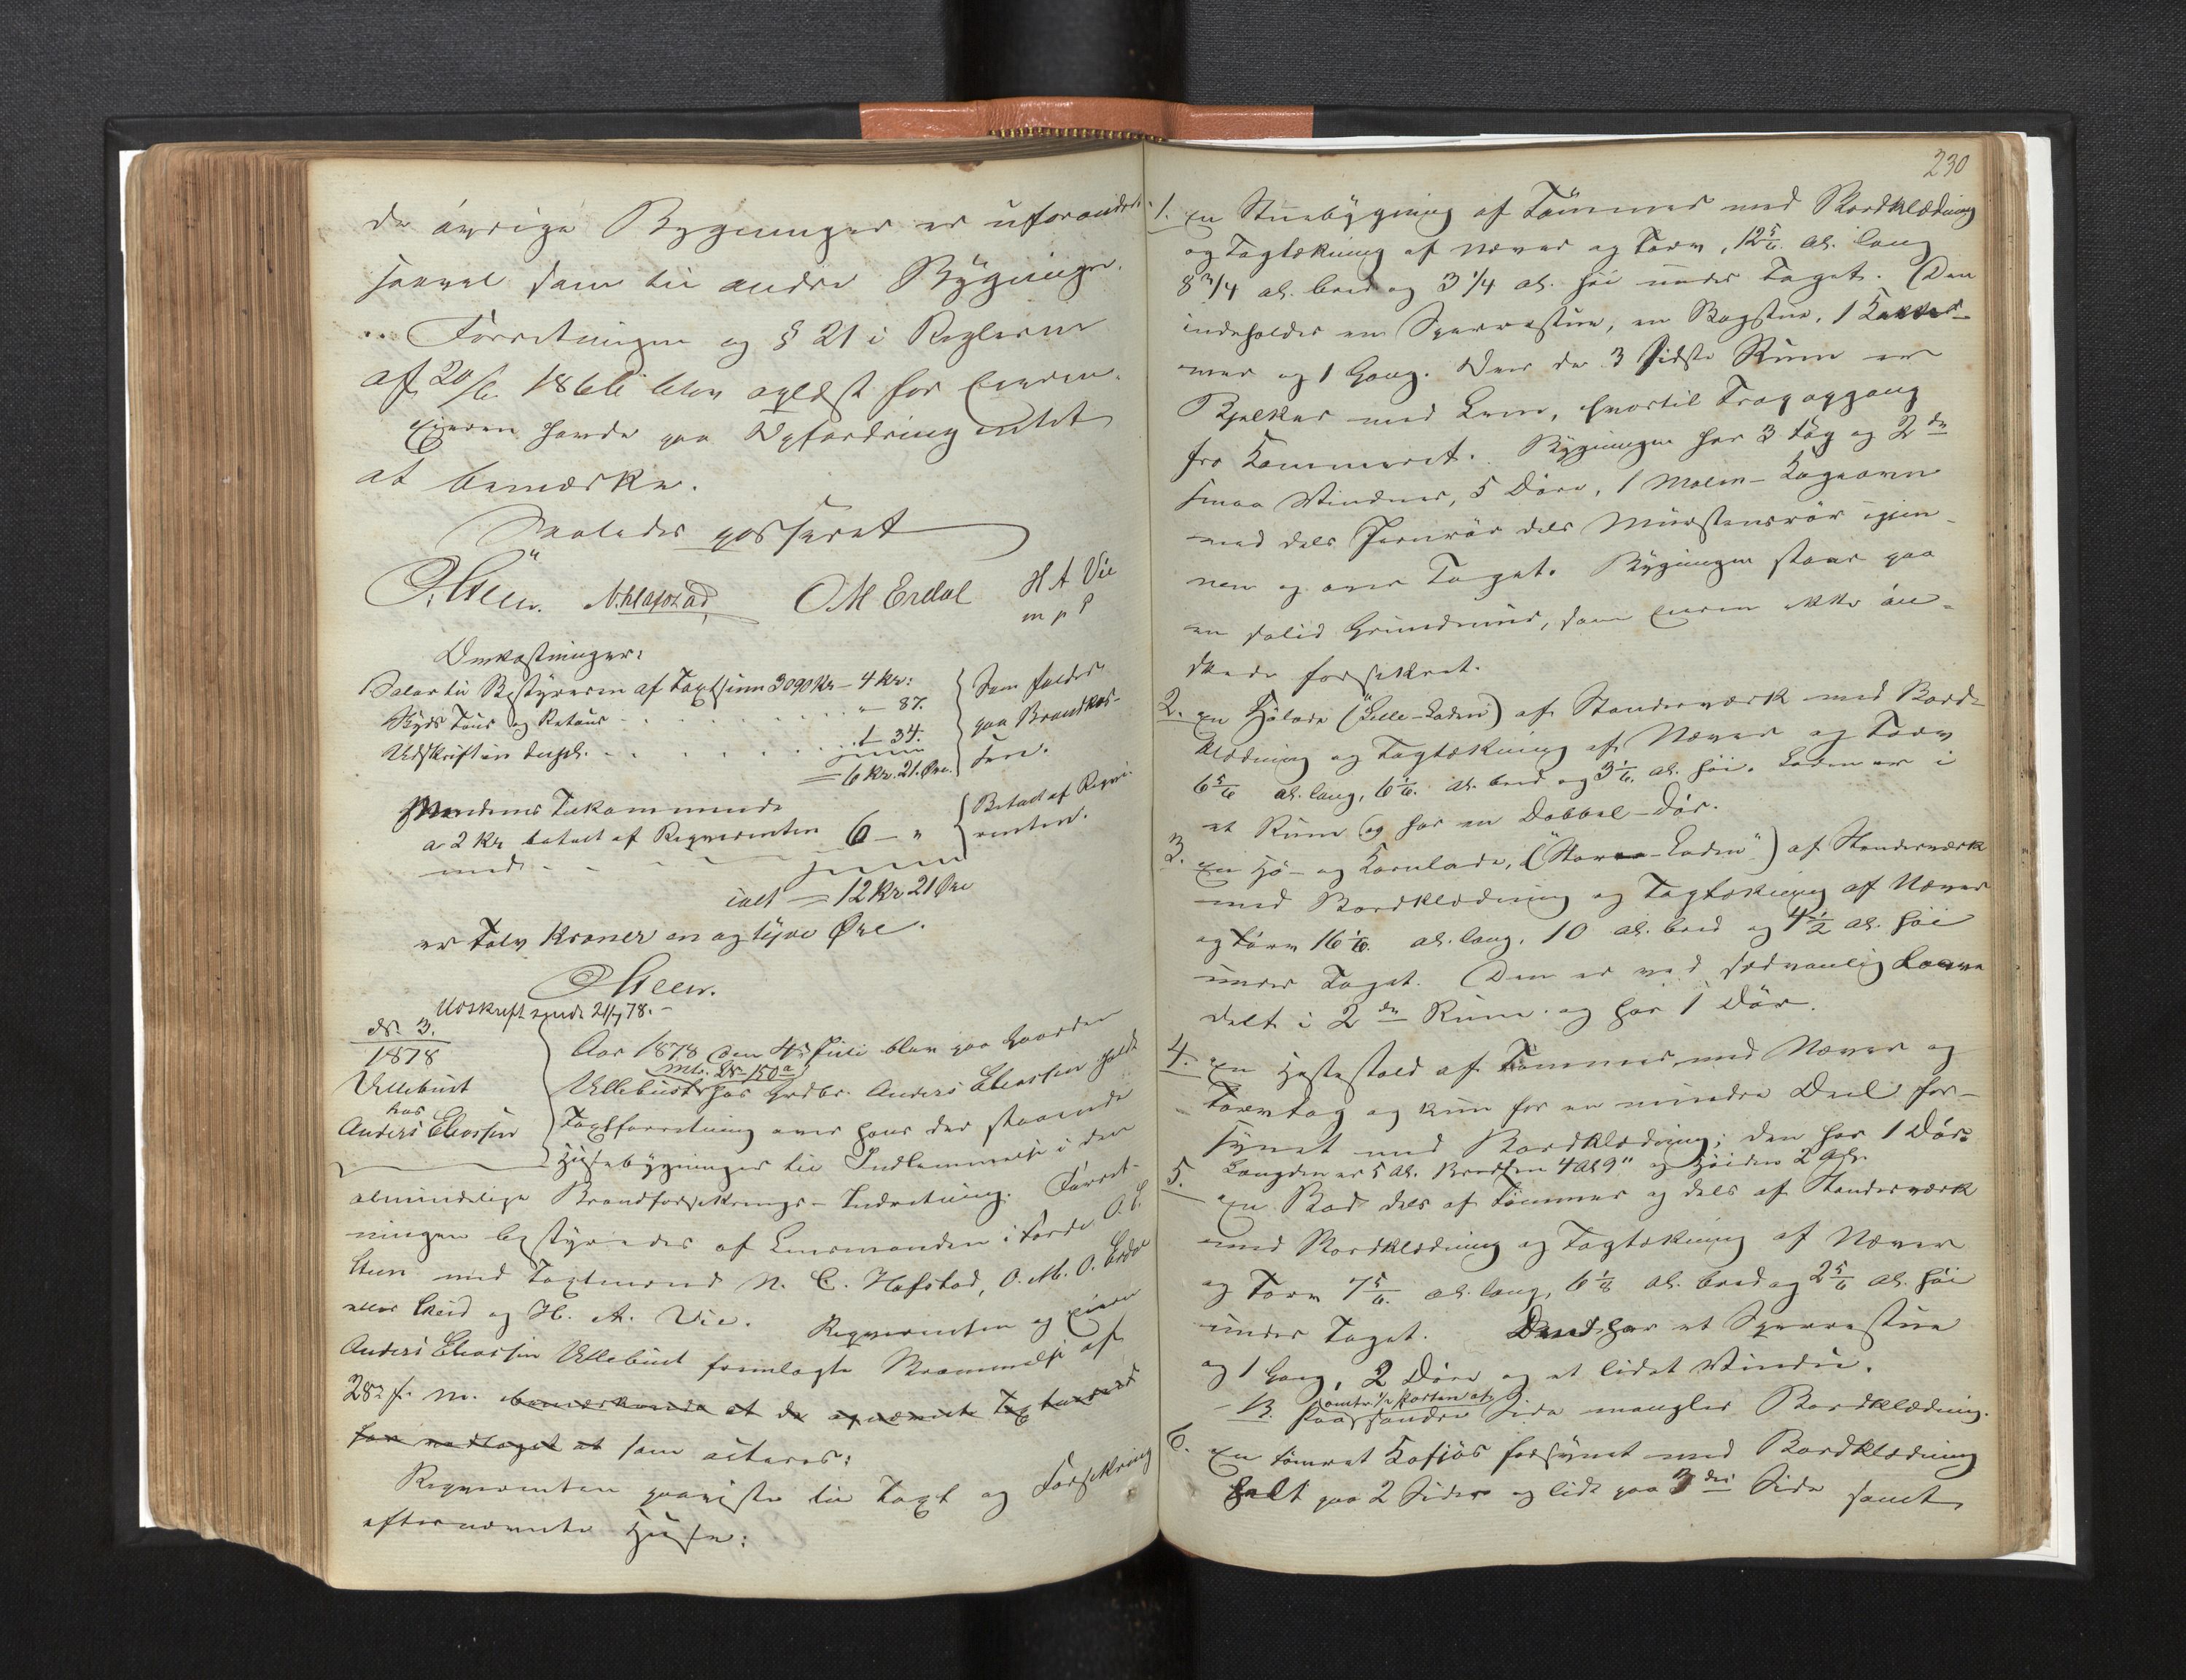 de øvrige Bygninger er uforandret
saavel som til andre Bygninger.
Forretningen og § 21 i Reglerne
af 20/6 1866 blev oplæst for Eieren.
Eieren havde paa Opfordring intet
at bemærke.
Saaledes passeret
O. Steen. N. Hafstad O M Erdal H A Vie
m p P
Omkostninger:
Salar til Bestyreren af Taxtsum 3090 Kr – 4 Kr:
Skyds Tour og Retour - - - " – 87.
Udskrift in dupl. - - - 1 – 34.
= 6 Kr. 21 Øre.
Som falder
paa Brandkas-
sen.
Mændenes Tilkommende
a 2 Kr betalt af Reqvirenten 6 – "
med - -
Betalt af Reqvi-
renten.
ialt = 12 Kr 21 Øre
er Tolv Kroner en og tyve Øre.
O Steen.
Udskrift sendt 21/7 78. –
No. 3.
1878
Vellebust
hos
Anders Eliassen
Aar 1878 den 4de Juli blev paa Gaarden
Mtr. No 150a
Vellebust hos Grdbr. Anders Eliassen holdt
Taxtforretning over hans der staaende
Husebygninger til Indlemmelse i den
almindelige Brandforsikrings-Indretning. Forret-
ningen bestyredes af Lensmanden i Førde O. C.
Steen med Taxtmænd N. C. Hafstad, O. M. O. Erdal
og H. A. Vie. Reqvirenten og Eieren
Anders Eliassen Vellebust fremlagte Skrammelse af
28de f. M. bemærkende at de opnævnte Taxtmænd
har modtaget at som acteres:
Reqvirenten paaviste til Taxt og Forsikring
efternævnte Huse:
230
1. En Stuebygning af Tømmer med Bordklædning
og Tagtækning af Næver og Torv, 12 5/6 al. lang
8 3/4 al. bred og 3 1/4 al. høi under Taget. Den
indeholder en Sperrestue, en Bagstue, 1 Kam-
mer og 1 Gang. Over de 3 sidste Rum er
Bjelker med Lem, hvortil Trapopgang
fra Kammeret. Bygningen har 3 Fag og 2de
smaa Vinduer, 5 Døre, 1 Malm-Kogeovn
med dels Jernrør dels Murstensrør igjen-
nem og over Taget. Bygningen staar paa
en solid Grundmur, som Eieren ikke øn-
skede forsikret.
2. En Hølade ("Lille-Laden") af Stenderværk med Bord-
klædning og Tagtækning af Næver og Torv
6 5/6 al. lang, 6 1/6 al. bred og 3 1/6 al. høi. Laden er i
et Rum og har en Dobbel-Dør.
3. En Hø- og Kornlade, ("Store-Laden") af Stenderværk
med Bordklædning og Tagtækning af Næver
og Torv 16 1/6 al. lang, 10 al. bred og 4 1/2 al. høi
under Taget. Den er ved sædvanlig Laave
delt i 2de Rum og har 1 Dør.
4. En Hestestald af Tømmer med Næver og
Torvtag og kun for en mindre Deel for-
synet med Bordklædning; den har 1 Dør.
Længden er 5 Al. Bredden 4 Al 9" og Høiden 2 Al.
5. En Bod dels af Tømmer og dels af Stenderværk
med Bordklædning og Tagtækning af Næver
og Torv 7 5/6 al. lang, 6 1/8 al. bred og 2 5/6 al. høi
under Taget. Den har et Sperrestue
og 1 Gang, 2 Døre og et lidet Vindu.
omtr. 1/2 Parten af
NB. Paa søndre Side mangler Bordklædning.
6. En tømret Kofjøs forsynet med Bordklædning
helt paa 2 Sider og lidt paa 3die Side samt